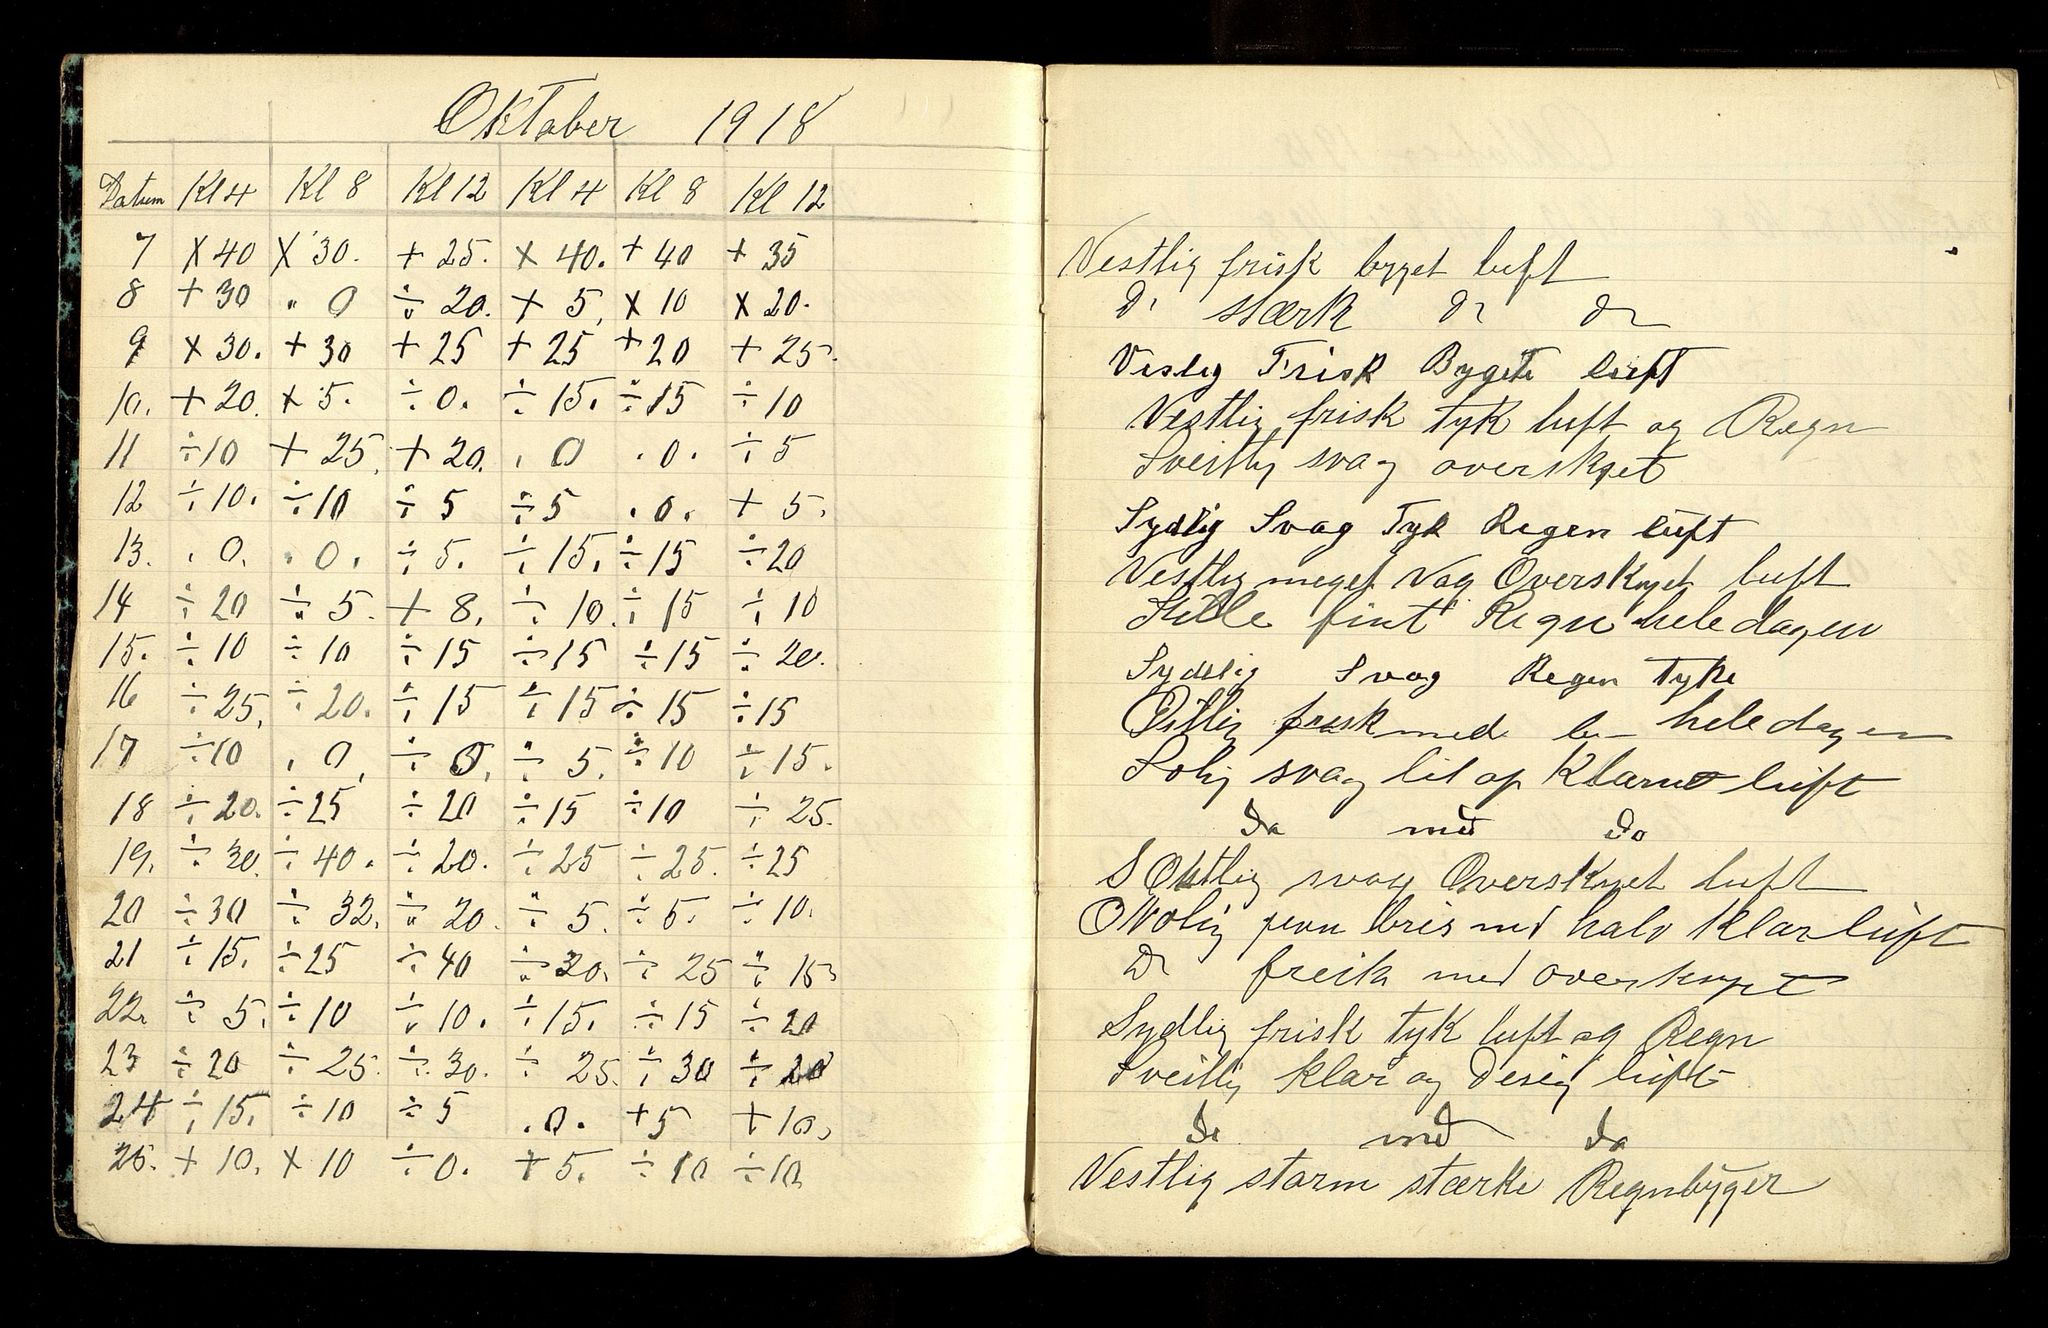 Oktober 1918
Datum Kl 4 Kl 8 Kl 12 Kl 4 Kl 8 Kl 12
7 × 40 × 30. + 25. × 40. + 40 + 35
8 + 30 " 0 ÷ 20. + 5, × 10 × 20.
9 × 30. + 30 + 25 + 25 + 20 + 25.
10. + 20. × 5. ÷ 0. ÷ 15. ÷ 15 ÷ 10
11 ÷ 10 + 25, + 20. . 0 . 0. ÷ 5
12 ÷ 10. ÷ 10 ÷ 5 ÷ 5 . 0. + 5.
13. . 0. . 0. ÷ 5. ÷ 15. ÷ 15 ÷ 20
14 ÷ 20 ÷ 5. + 8. ÷ 10. ÷ 15 ÷ 10
15. ÷ 10 ÷ 10 ÷ 15 ÷ 15 ÷ 15 ÷ 20.
16 ÷ 25, ÷ 20. ÷ 15 ÷ 15 ÷ 15 ÷ 15
17 ÷ 10 . 0, ÷ 0, ÷ 5. ÷ 10 ÷ 15.
18 ÷ 20. ÷ 25 ÷ 20 ÷ 15 ÷ 10 ÷ 25.
19. ÷ 30. ÷ 40. ÷ 20. ÷ 25 ÷ 25. ÷ 25
20 ÷ 30 ÷ 32. ÷ 20. ÷ 5. ÷ 5. ÷ 10.
21 ÷ 15. ÷ 25 ÷ 40 ÷ 20. ÷ 25 ÷ 15,
22. ÷ 5. ÷ 10 ÷ 10. ÷ 15. ÷ 15 ÷ 20
23 ÷ 20 ÷ 25. ÷ 30. ÷ 25. ÷ 30 ÷ 20
24 ÷ 15. ÷ 10 ÷ 5 . 0. + 5 + 10,
25. + 10. × 10 ÷ 0. + 5. ÷ 10 ÷ 10,
Vestlig frisk byget luft
Do stærk Do Do
Veslig Frisk Byget luft
Vestlig frisk tyk luft og Regn
Svestlig svag overskyet
Sydlig Svag Tyk Regen luft
Vestlig meget Vag Overskyet luft
Stille fint Regn hele dagen
Sydslig Svag Regen tyke
Ostlig frisk med hele dagen
Solig svag lit op Klarne luft
Do med Do
S Ostlig svag Overskyet luft
O Nolig jevn bris med halv klar luft
Do freisk med overskyet
Sydlig frisk tyk luft og Regn
Sveitlig klar og Desig luft
Do med Do
Vestlig storm stærke Regnbyger